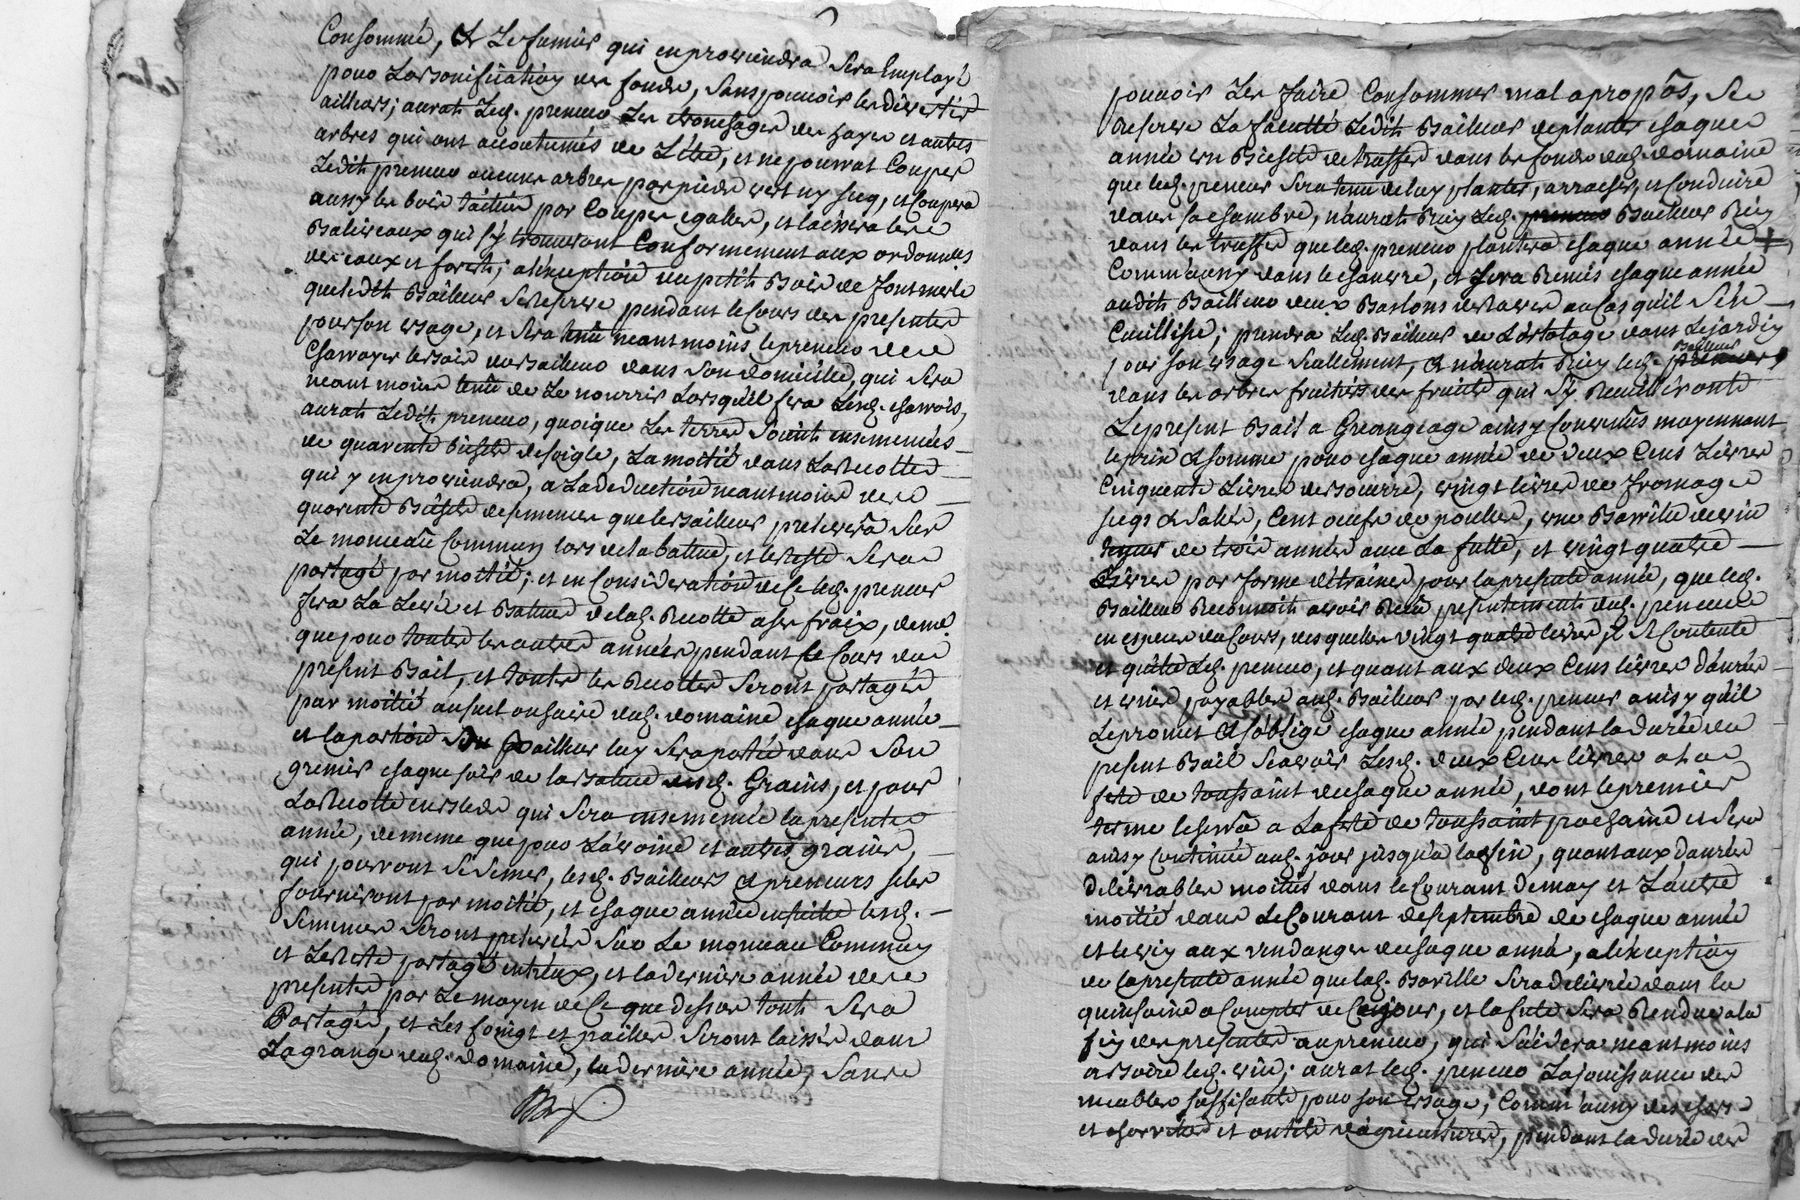 Consommé, & Le fumier qui en proviendra Sera Employé
pour La bonification des fonds, Sans pouvoir les divertir
ailleurs; aurat Led. preneur Les tronchages des hayes et autres
arbres qui ont accoutumés de L'être, et ne pourrat Couper
Ledit preneur aucuns arbres par pieds vert ny secq, et Coupera
aussy les bois taillis par Coupes egalles, et laissera les
Baliveaux qui s'y trouveront Conformement aux ordonnces
des eaux et forets; a l'exception du petit Bois de font merle
que ledit Bailleur Se reserve pendant le Cours des presentes
pour son usage, et Sera tenû neantmoins le preneur de
Charroyer le bois du Bailleur dans Son domicille, qui Sera
neantmoins tenû de Le nourrir Lorsqu'il fera Lesd. charrois,
aurat Ledit preneur, quoique Les terres Soient ensemencées
de quarente bichets de soigle, La moitié dans La Recolte
qui y en proviendra, a La deduction neantmoins de
quarente Bichets de semence que le Bailleur prelevera Sur
Le monceau Commun lors de la battue, et le reste Sera
partagé par moitié; et en Consideration de Ce led. preneur
fera La Levée et Battue de lad. Recolte a ses fraix, de mê.
que pour toutes les autres années pendant le Cours du
present Bail, et toutes les Recoltes Seront partagées
par moitié au suel ou haire dud. domaine chaque année
et la portion Du Bailleur luy Sera portée dans Son
grenier chaque soir de la battue desd. Grains, et pour
La Recolte en bleds qui Sera ensemencée la presente
année, de meme que pour L'avoine et autres grains,
qui pourront Se Semer, lesd. Bailleurs & preneurs se les
fourniront par moitié, et chaque année ensuitte lesd.
Semences Seront prelevées Sur Le monceau Commun
et Le reste partagé entr'eux, et la derniere année des
presentes par Le moyen de Ce que dessus tout Sera
Partagé, et Les foings et pailles Seront laissés dans
La grange dud. domaine, la derniere année, Sans
pouvoir Les faire Consommer mal a propôs, Se
Reserve La faculté Ledit Bailleur de planter chaque
année un Bichet de truffes dans les fonds dud. domaine
que led. preneur Sera tenû de luy planter, arracher, et Conduire
dans sa chambre, n'aurat Rien Led. preneur Bailleur Rien
dans les truffes que led. preneur plantera chaque année
Comm'aussy dans le chanvre, et Sera Remis chaque année
audit Bailleur deux Bastons de raves au Cas qu'il S'en
Cueillisse; prendra Led. Bailleur de L'ortolage dans Le jardin
pour son usage Seullement, & n'aurat Rien led. preneur Bailleur
dans les arbres fruitiers des fruits qui S'y Recuilliront
Le present Bail a Grangeage ainsy Convenûs moyennant
le prix & somme pour chaque année de deux Cens Livres
Cinquente Livres de beurre, vingt livres de fromage
secqs & Salés, Cent oeufs de poulles, une Barille de vin
de trois années avec La futte, et vingt quatre
Livres par forme d'étraines pour la presente année, que led.
Bailleur Reconnoit avoir Recû presentement dud. preneur
en especes du Cours, desquelles vingt quatre livres, il Se Contente
et quitte Led. preneur, et quant aux deux Cens livres danrées
et vin payables aud. Bailleur par led. preneur ainsy qu'il
Le promet & s'oblige chaque année pendant la durée du
present Bail Scavoir Lesd. deux Cens livres a la
fete de toussaint de chaque année, dont le premier
terme echerra a La fete de toussaint prochaine et Sera
ainsy Continué aud. jour jusqu'a la fin, quant aux danrées
delivrables moitié dans le Courant de may et L'autre
moitié dans Le Courant de septembre de chaque année
et le vin aux vendanges de chaque année, a l'exception
de la presente année que lad. Barille Sera delivrée dans la
quinsaine a Compter de Ce jour, et la futte Sera Rendue a la
fin des presentes au preneur, qui S'aidera neantmoins
a boire led. vin; aurat led. preneur La jouissance des
meubles suffisants pour son usage, Comm'aussy des chars
et charrettes et outils d'agriculture, pendant la durée des